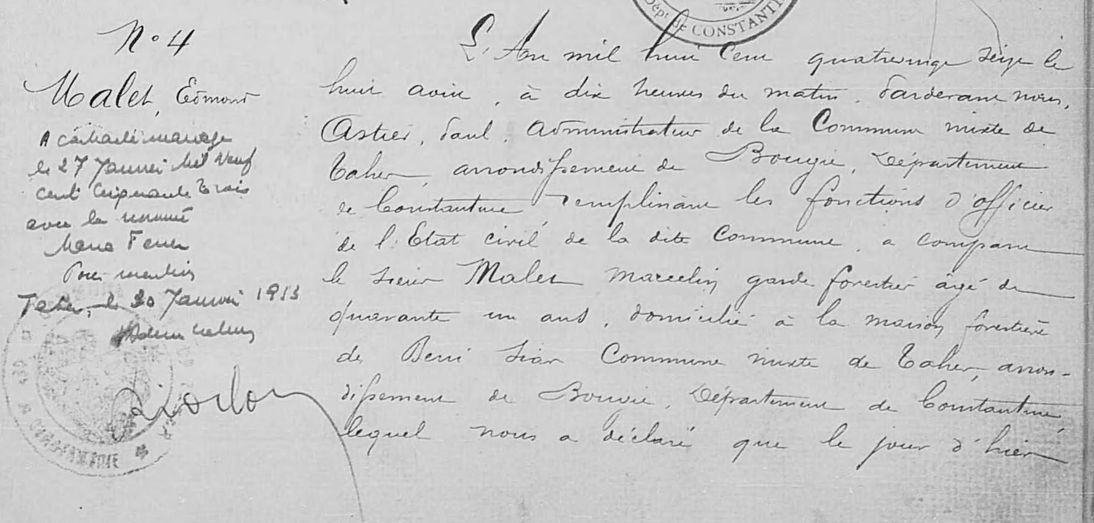 N° 4
Malet, Edmond
A contracté mariage
le 27 Janvier Mil Neuf
cent Cinquante Trois
avec la nommé
Maria
Pour mention
Taher, le 30 Janvier 1953
Dépt de CONSTANTINE
L'An mil huit cent quatrevingt seize le
huit avril, à dix heures du matin, pardevant nous,
Astier, Paul, Administrateur de la Commune mixte de
Taher, arrondissement de Bougie, Département
de Constantine, remplissant les fonctions d'officier
de l'Etat civil de la dite Commune, a comparu
le sieur Malet Marcelin garde forestier âgé de
quarante un ans, domicilié à la maison forestière
de Beni Siar Commune mixte de Taher, arron-
dissement de Bougie, Département de Constantine,
lequel nous a déclaré que le jour d'hier